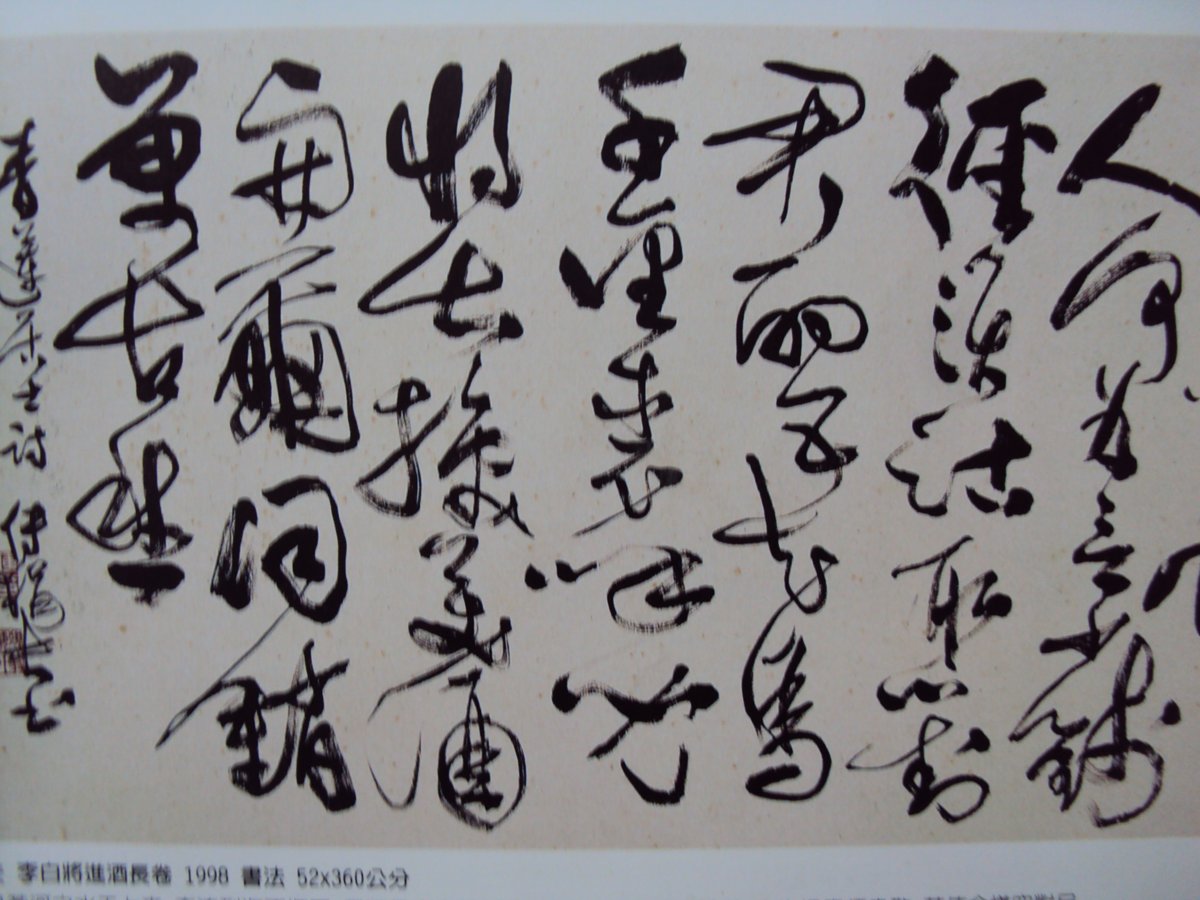 人何為言少錢
徑須沽取對
君酌五花馬
千金裘呼兒
將出換美酒
與爾同銷
萬古愁
青蓮居士詩
李白將進酒長卷 1998 書法 52x360公分